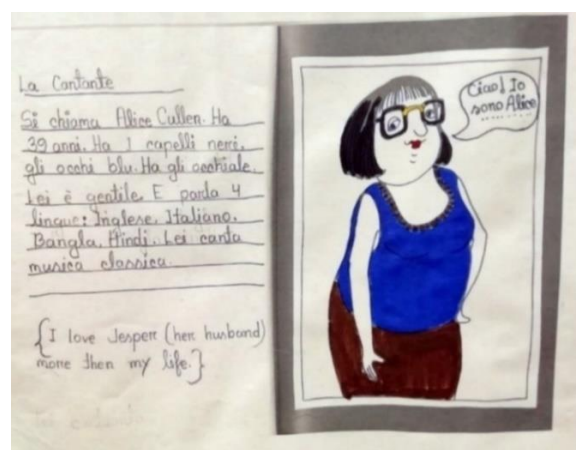 La Cantante
Si chiama Alice Cullen. Ha
39 anni. Ha I capelli neri,
gli occhi blu. Ha gli occhiale.
Lei è gentile. E parla 4
lingue: Inglese, Italiano,
Bangla, Hindi. Lei canta
musica classica.
{I love Jesperr (her husband)
more then my life.}
Ciao! Io
sono Alice